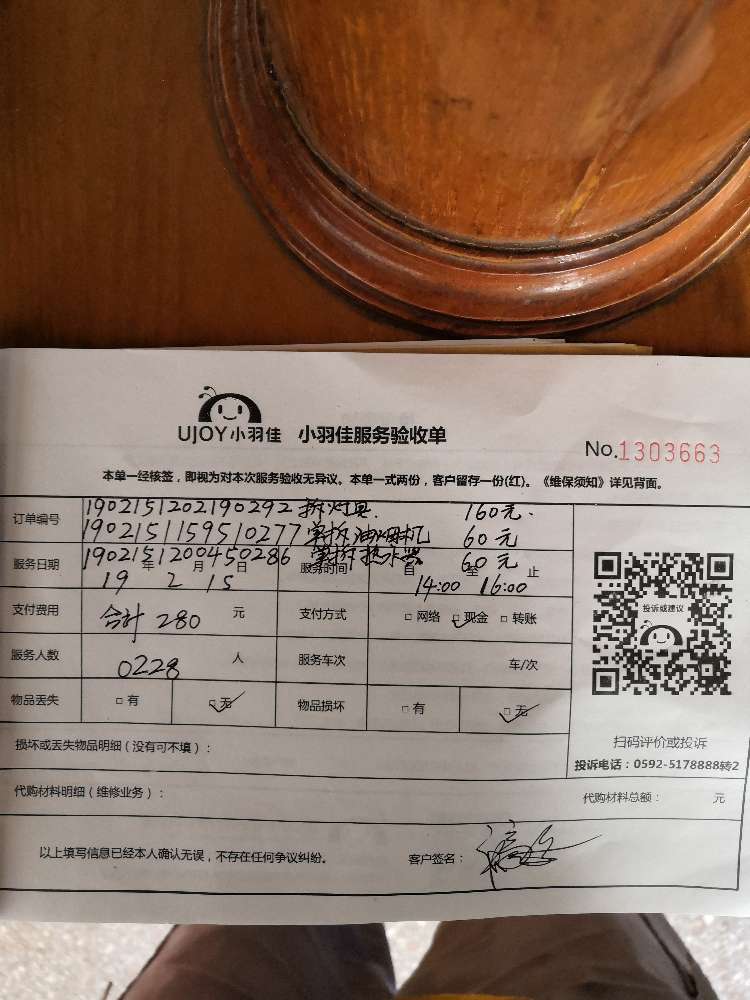 UJOY小羽佳 小羽佳服务验收单
No.1303663
本单一经核签，即视为对本次服务验收无异议。本单一式两份，客户留存一份(红)。《维保须知》详见背面。
订单编号 1902151202190292 拆灯具 160元.
1902151159510277 单拆油烟机 60元
1902151200450286 单拆热水器 60元
服务日期 19年2月15日 服务时间 自14:00至16:00止
支付费用 合计280元 支付方式 □网络 □现金 □转账
服务人数 0228人 服务车次 车/次
物品丢失 □有 □无 物品损坏 □有 □无
投诉或建议
扫码评价或投诉
投诉电话：0592-5178888转2
损坏或丢失物品明细（没有可不填）：
代购材料明细（维修业务）： 代购材料总额： 元
以上填写信息已经本人确认无误，不存在任何争议纠纷。 客户签名：